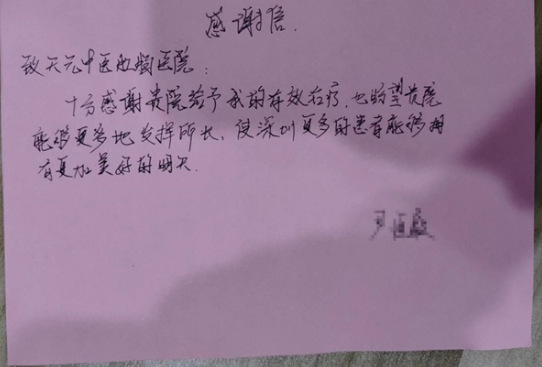 感谢信.
致天元中医血癌医院:
十分感谢贵院给予我的有效治疗,也盼望贵院
能够更多地发挥所长、使深圳更多的患者能够拥
有更加美好的明天.